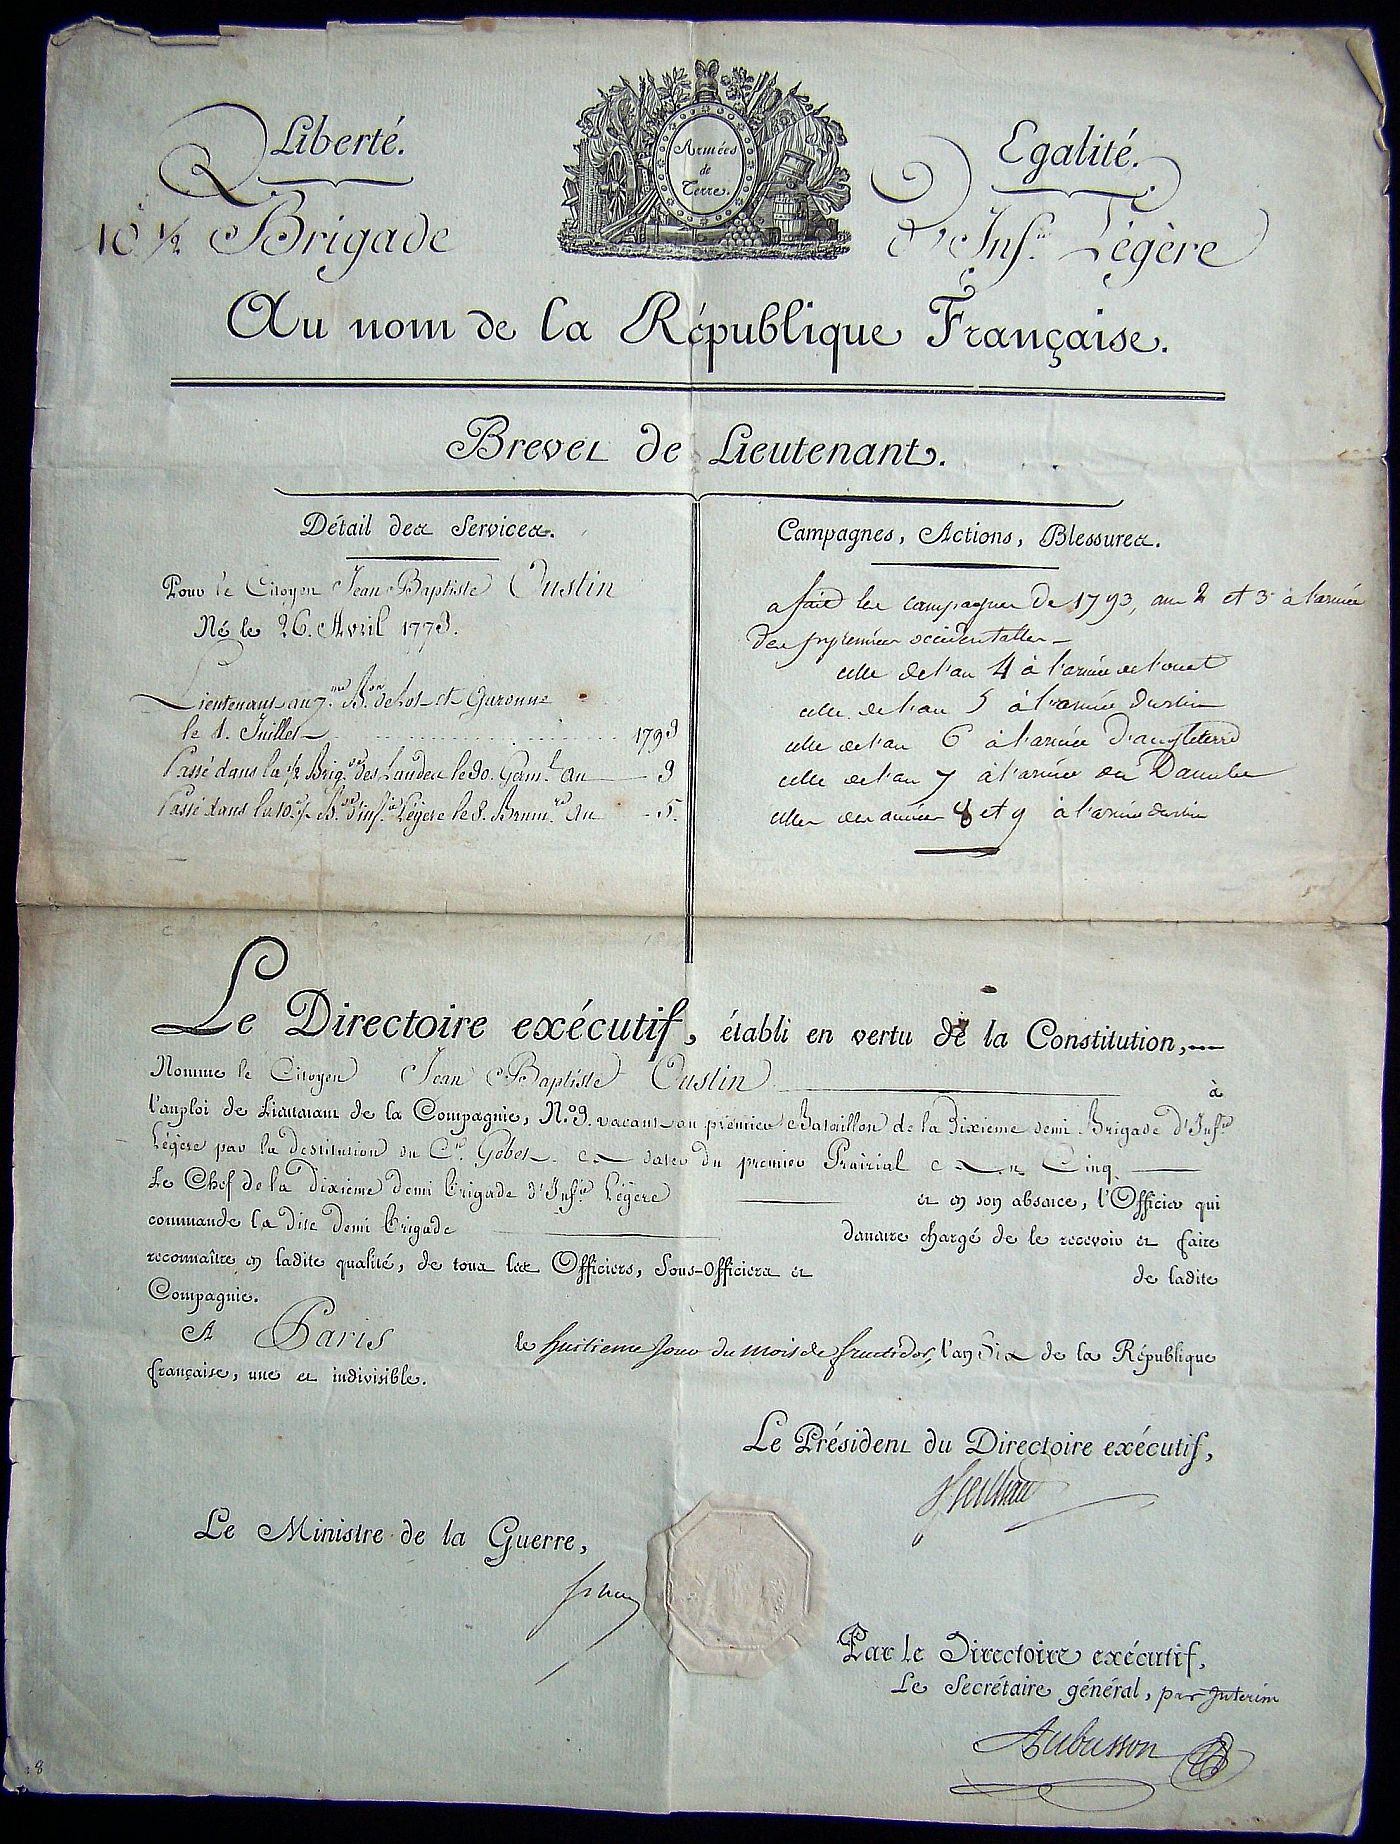 Liberté.
Egalité.
Armées
de
Terre.
10e ½ Brigade
d'Inf.ie Légère
Au nom de la République Française.
Brevet de Lieutenant.
Détail des Services.
Pour le Citoyen Jean Baptiste Oustin
Né le 26. Avril 1773.
Lieutenant au 7.me B.on de Lot et Garonne
le 1. Juillet 1793
Passé dans la ½ Brig.de des Landes le 30. Germ.l An 3
Passé dans la 10.e ½ B.de d'inf.ie Légère le 8. Brum.re An 5.
Campagnes, Actions, Blessures.
a fait les campagnes de 1793, ans 2 et 3 à l'armée
des pyrennées occidentalles
celle de l'an 4 à l'armée de l'ouest
celle de l'an 5 à l'armée du rhin
celle de l'an 6 à l'armée d'angleterre
celle de l'an 7 à l'armée du Danube
celles des années 8 et 9 à l'armée du rhin
Le Directoire exécutif, établi en vertu de la Constitution,
Nomme le Citoyen Jean Baptiste Oustin à
l'emploi de Lieutenant de la Compagnie, N.o 9. vacant au premier Bataillon de la Dixieme demi Brigade d'Inf.ie
Légère par la destitution du C.en Gobet. à dater du premier Prairial an Cinq.
Le Chef de la Dixième demi Brigade d'Inf.ie Légère et en son absence, l'Officier qui
commande la dite demi Brigade demeure chargé de le recevoir et faire
reconnaître en ladite qualité, de tous les Officiers, Sous-Officiers et de ladite
Compagnie.
A Paris le huitieme jour du mois de fructidor, l'an Six de la République
française, une et indivisible.
Le Président du Directoire exécutif,
Treilhard
Le Ministre de la Guerre,
Par le Directoire exécutif,
Le Secrétaire général, par Interim
Aubusson
8